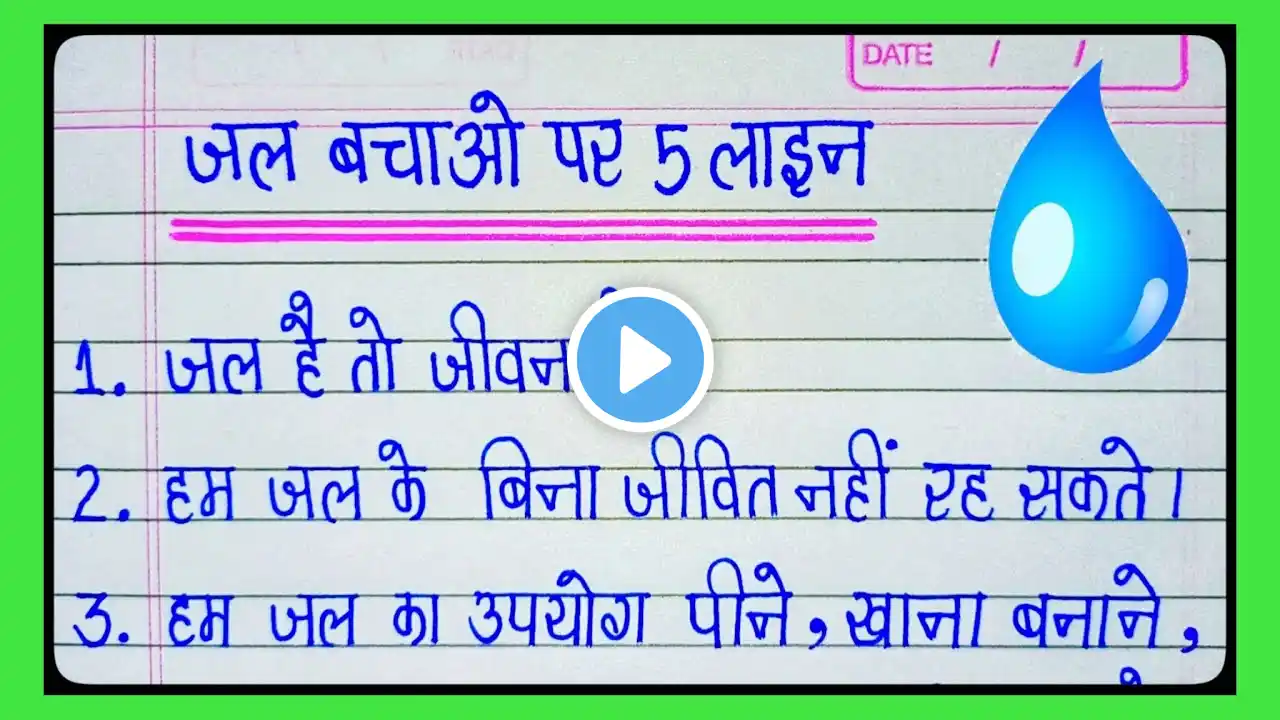 DATE / /
जल बचाओ पर 5 लाइन
1. जल है तो जीवन
2. हम जल के बिना जीवित नहीं रह सकते।
3. हम जल का उपयोग पीने, खाना बनाने,